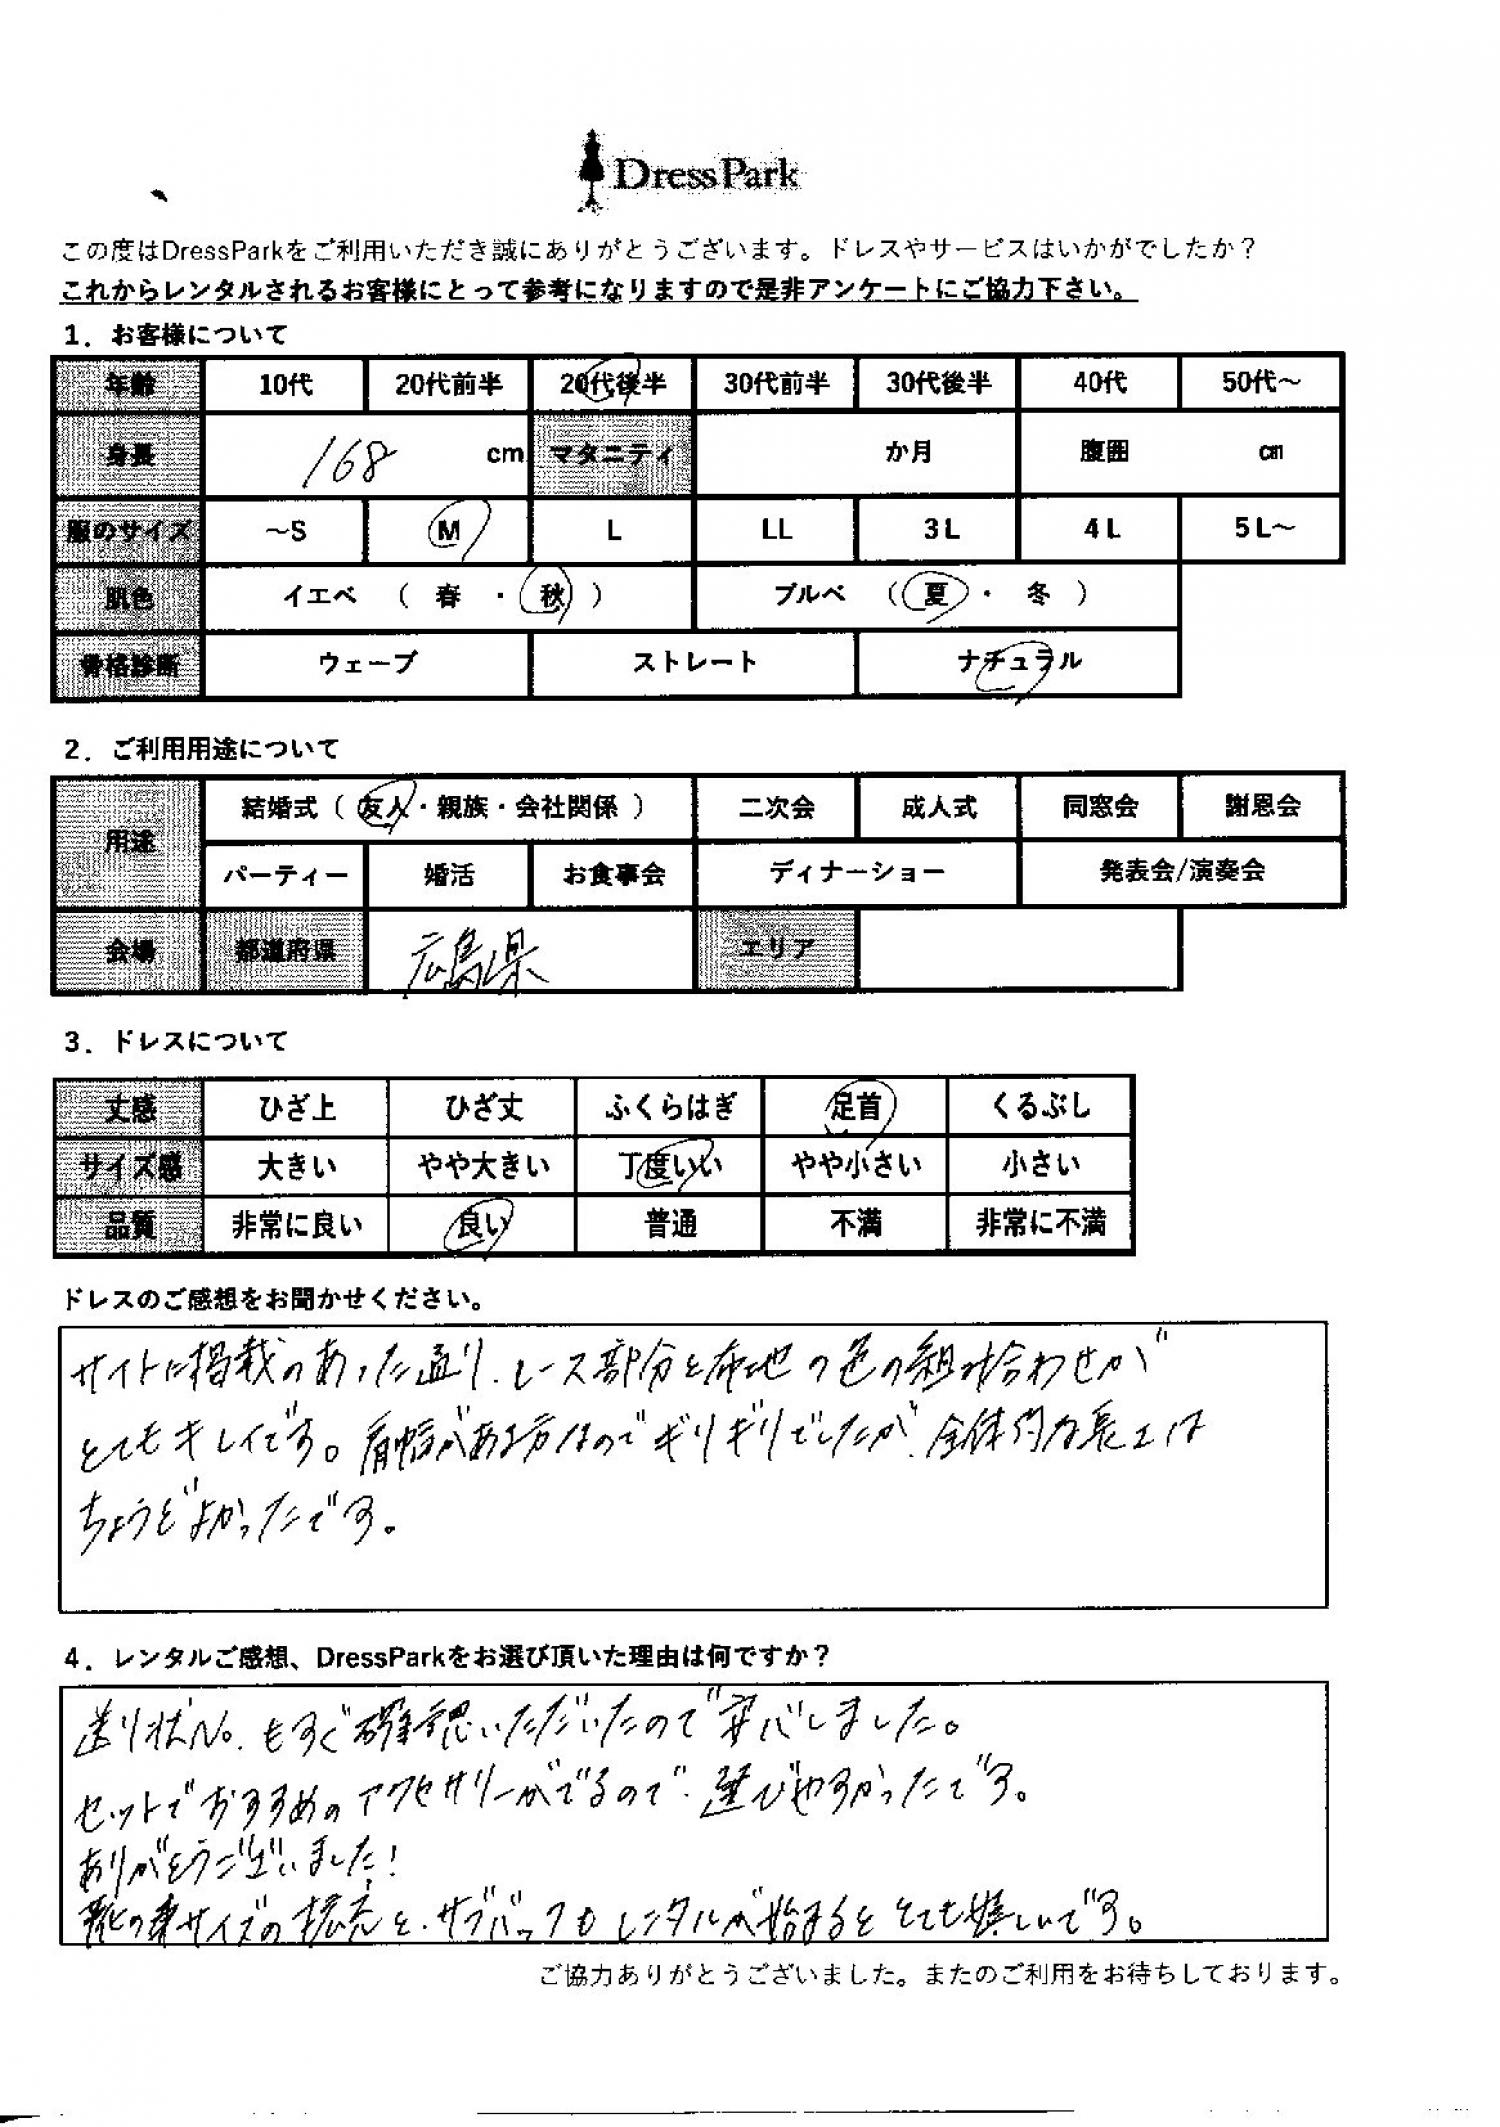 DressPark
この度はDressParkをご利用いただき誠にありがとうございます。ドレスやサービスはいかがでしたか？
これからレンタルされるお客様にとって参考になりますので是非アンケートにご協力下さい。
1．お客様について
年齢 10代 20代前半 20代後半 30代前半 30代後半 40代 50代～
身長 168 cm マタニティ か月 腹囲 cm
服のサイズ ～S M L LL 3L 4L 5L～
肌色 イエベ （ 春 ・ 秋 ） ブルベ （ 夏 ・ 冬 ）
骨格診断 ウェーブ ストレート ナチュラル
2．ご利用用途について
用途 結婚式（ 友人・親族・会社関係 ） 二次会 成人式 同窓会 謝恩会
パーティー 婚活 お食事会 ディナーショー 発表会/演奏会
会場 都道府県 広島県 エリア
3．ドレスについて
丈感 ひざ上 ひざ丈 ふくらはぎ 足首 くるぶし
サイズ感 大きい やや大きい 丁度いい やや小さい 小さい
品質 非常に良い 良い 普通 不満 非常に不満
ドレスのご感想をお聞かせください。
サイトに掲載のあった通り、レース部分と布地の色の組み合わせが
とてもキレイです。肩幅がある方なのでギリギリでしたが、全体的な長さは
ちょうどよかったです。
4．レンタルご感想、DressParkをお選び頂いた理由は何ですか？
送り状No.もすぐ確認いただいたので安心しました。
セットでおすすめのアクセサリーがでるので、選びやすかったです。
ありがとうございました！
靴のサイズの拡充と、サブバックもレンタルが始まるととても嬉しいです。
ご協力ありがとうございました。またのご利用をお待ちしております。